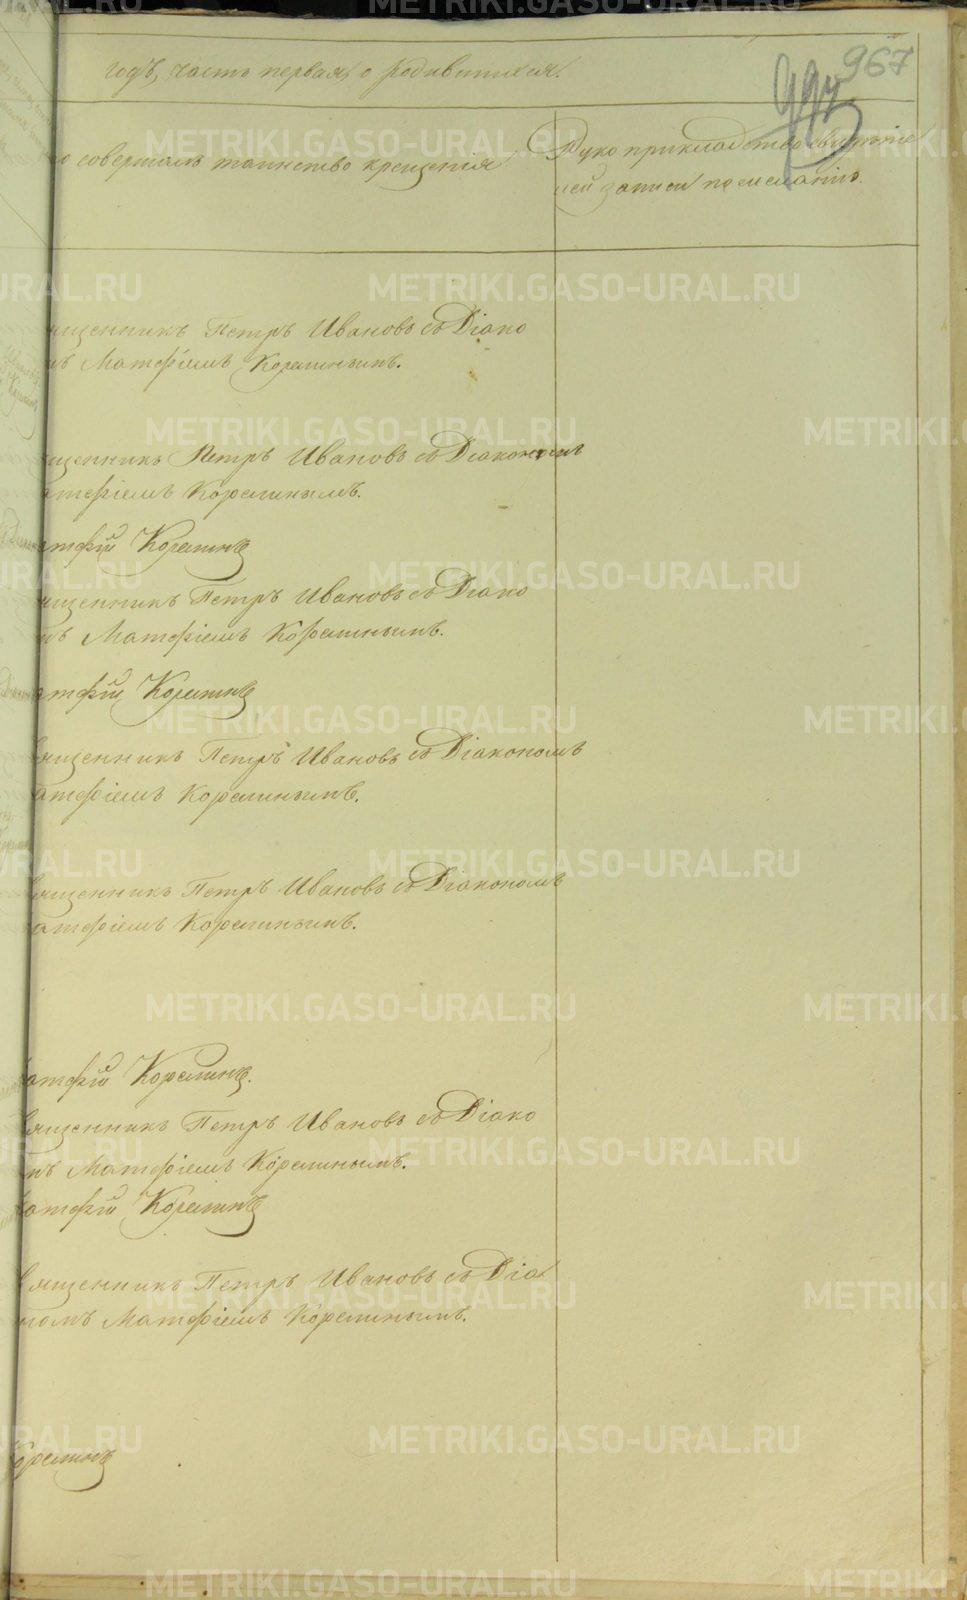 967
годъ, часть первая, о родившихся.
о совершалъ таинство крещенія
Рукоприкладство свидѣте
лей записи по желанію.
щенникъ Петръ Ивановъ съ Діако
мъ Матѳіемъ Корелинымъ.
щенникъ Петръ Ивановъ съ Діакономъ
атѳіемъ Корелинымъ.
атфій Корелинъ
щенникъ Петръ Ивановъ съ Діако
мъ Матѳіемъ Корелинымъ.
атфій Корелинъ
ященникъ Петръ Ивановъ съ Діакономъ
атѳіемъ Корелинымъ.
ященникъ Петръ Ивановъ съ Діакономъ
атѳіемъ Корелинымъ.
атфій Корелинъ.
вященникъ Петръ Ивановъ съ Діако
мъ Матѳіемъ Корелинымъ.
атфій Корелинъ
вященникъ Петръ Ивановъ съ Діа
номъ Матѳіемъ Корелинымъ.
Корелинъ
METRIKI.GASO-URAL.RU